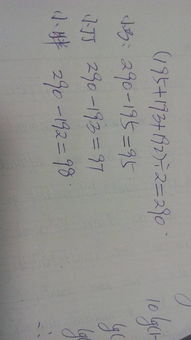 (195+193+192)÷2=290
小巧: 290-195=95
小丁 290-193=97
小胖 290-192=98
10 lg(1
lg(
lg
∴